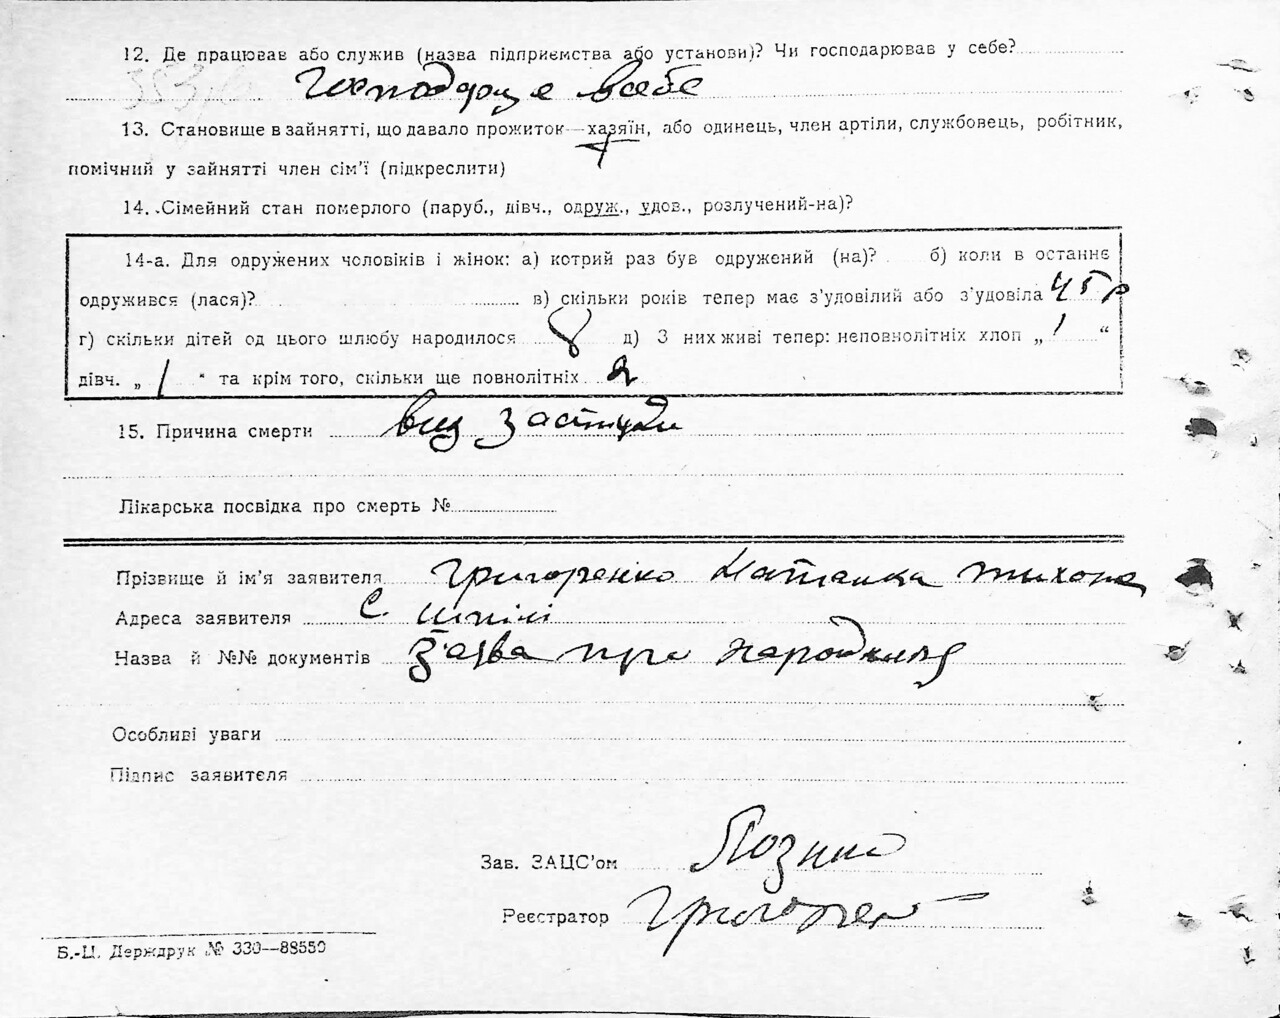 12. Де працював або служив (назва підприємства або установи)? Чи господарював у себе?
Господарює в себе
13. Становище в зайнятті, що давало прожиток—хазяїн, або одинець, член артіли, службовець, робітник,
помічний у зайнятті член сім'ї (підкреслити)
14. Сімейний стан померлого (паруб., дівч., одруж., удов., розлучений-на)?
14-а. Для одружених чоловіків і жінок: а) котрий раз був одружений (на)? б) коли в останнє
одружився (лася)? в) скільки років тепер має з'удовілий або з'удовіла 45 р
г) скільки дітей од цього шлюбу народилося 8 д) З них живі тепер: неповнолітніх хлоп „ 1 “
дівч. „ 1 “ та крім того, скільки ще повнолітніх 2
15. Причина смерти від застуди
Лікарська посвідка про смерть №
Прізвище й ім'я заявителя Григоренко Наталка Тихона
Адреса заявителя с. Шпілі
Назва й №№ документів Заява про народження
Особливі уваги
Підпис заявителя
Зав. ЗАЦС'ом
Реєстратор Григорен
Б.-Ц. Держдрук № 330—88550